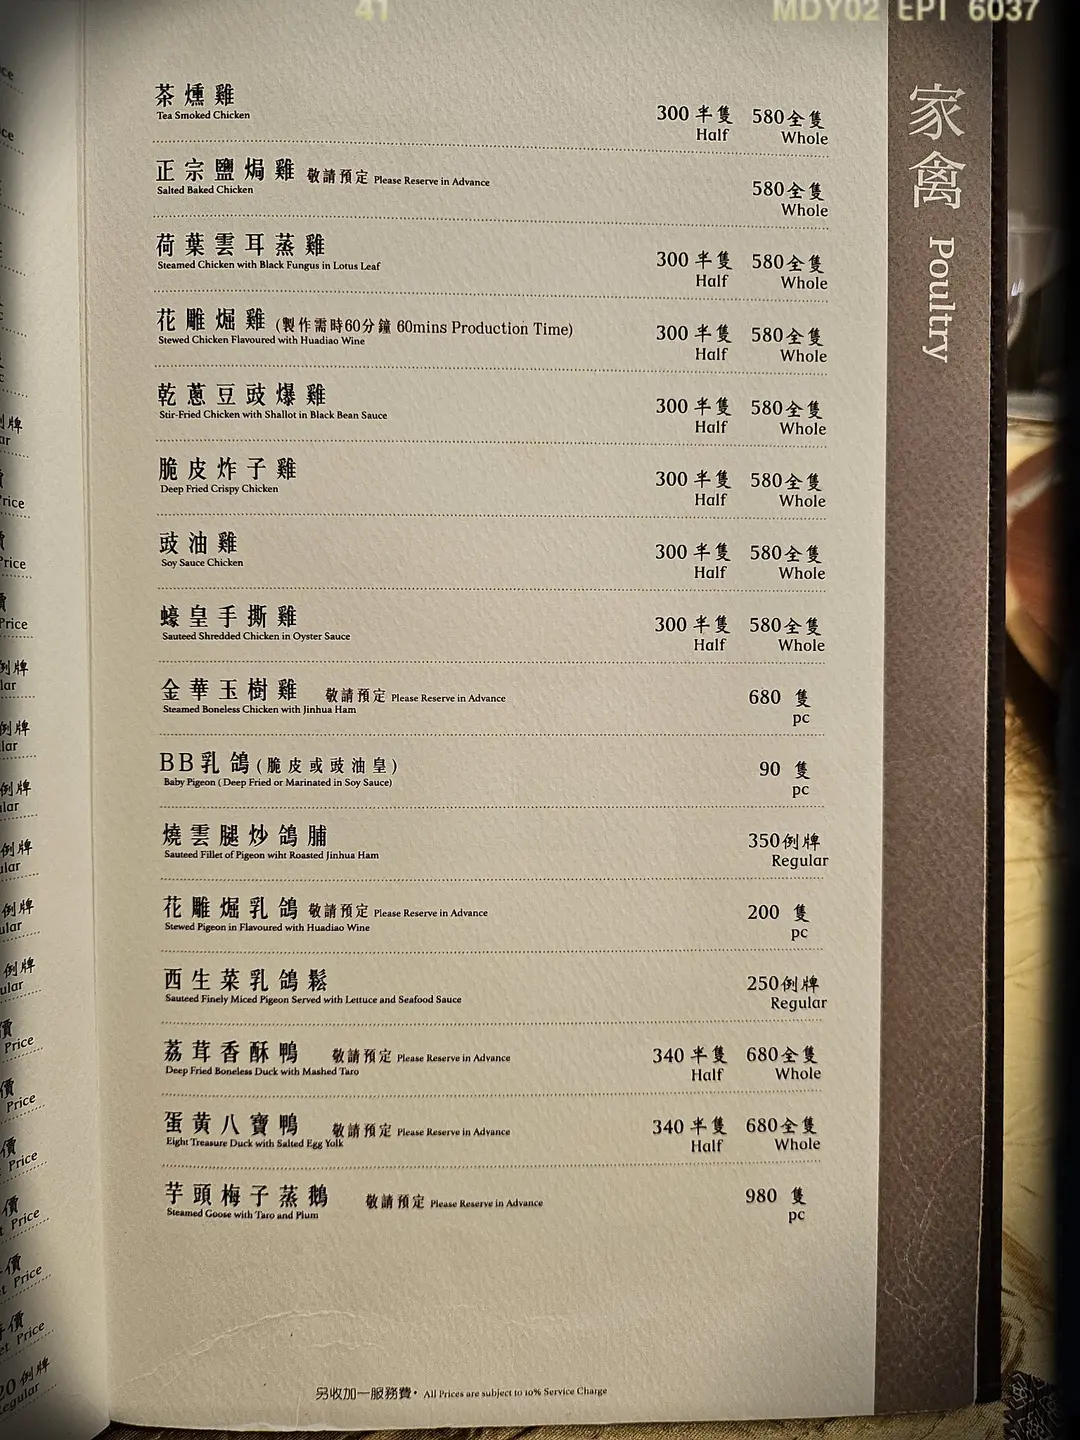 41
MDY02 EPT 6037
家禽 Poultry
茶燻雞
Tea Smoked Chicken
300 半隻 580全隻
Half Whole
正宗鹽焗雞 敬請預定 Please Reserve in Advance
Salted Baked Chicken
580全隻
Whole
荷葉雲耳蒸雞
Steamed Chicken with Black Fungus in Lotus Leaf
300 半隻 580全隻
Half Whole
花雕焗雞 (製作需時60分鐘 60mins Production Time)
Stewed Chicken Flavoured with Huadiao Wine
300 半隻 580全隻
Half Whole
乾蔥豆豉爆雞
Stir-Fried Chicken with Shallot in Black Bean Sauce
300 半隻 580全隻
Half Whole
脆皮炸子雞
Deep Fried Crispy Chicken
300 半隻 580全隻
Half Whole
豉油雞
Soy Sauce Chicken
300 半隻 580全隻
Half Whole
蠔皇手撕雞
Sauteed Shredded Chicken in Oyster Sauce
300 半隻 580全隻
Half Whole
金華玉樹雞 敬請預定 Please Reserve in Advance
Steamed Boneless Chicken with Jinhua Ham
680 隻
pc
BB乳鴿(脆皮或豉油皇)
Baby Pigeon (Deep Fried or Marinated in Soy Sauce)
90 隻
pc
燒雲腿炒鴿脯
Sauteed Fillet of Pigeon wiht Roasted Jinhua Ham
350例牌
Regular
花雕焗乳鴿 敬請預定 Please Reserve in Advance
Stewed Pigeon in Flavoured with Huadiao Wine
200 隻
pc
西生菜乳鴿鬆
Sauteed Finely Miced Pigeon Served with Lettuce and Seafood Sauce
250例牌
Regular
荔茸香酥鴨 敬請預定 Please Reserve in Advance
Deep Fried Boneless Duck with Mashed Taro
340 半隻 680全隻
Half Whole
蛋黄八寶鴨 敬請預定 Please Reserve in Advance
Eight Treasure Duck with Salted Egg Yolk
340 半隻 680全隻
Half Whole
芋頭梅子蒸鵝 敬請預定 Please Reserve in Advance
Steamed Goose with Taro and Plum
980 隻
pc
另收加一服務費・ All Prices are subject to 10% Service Charge